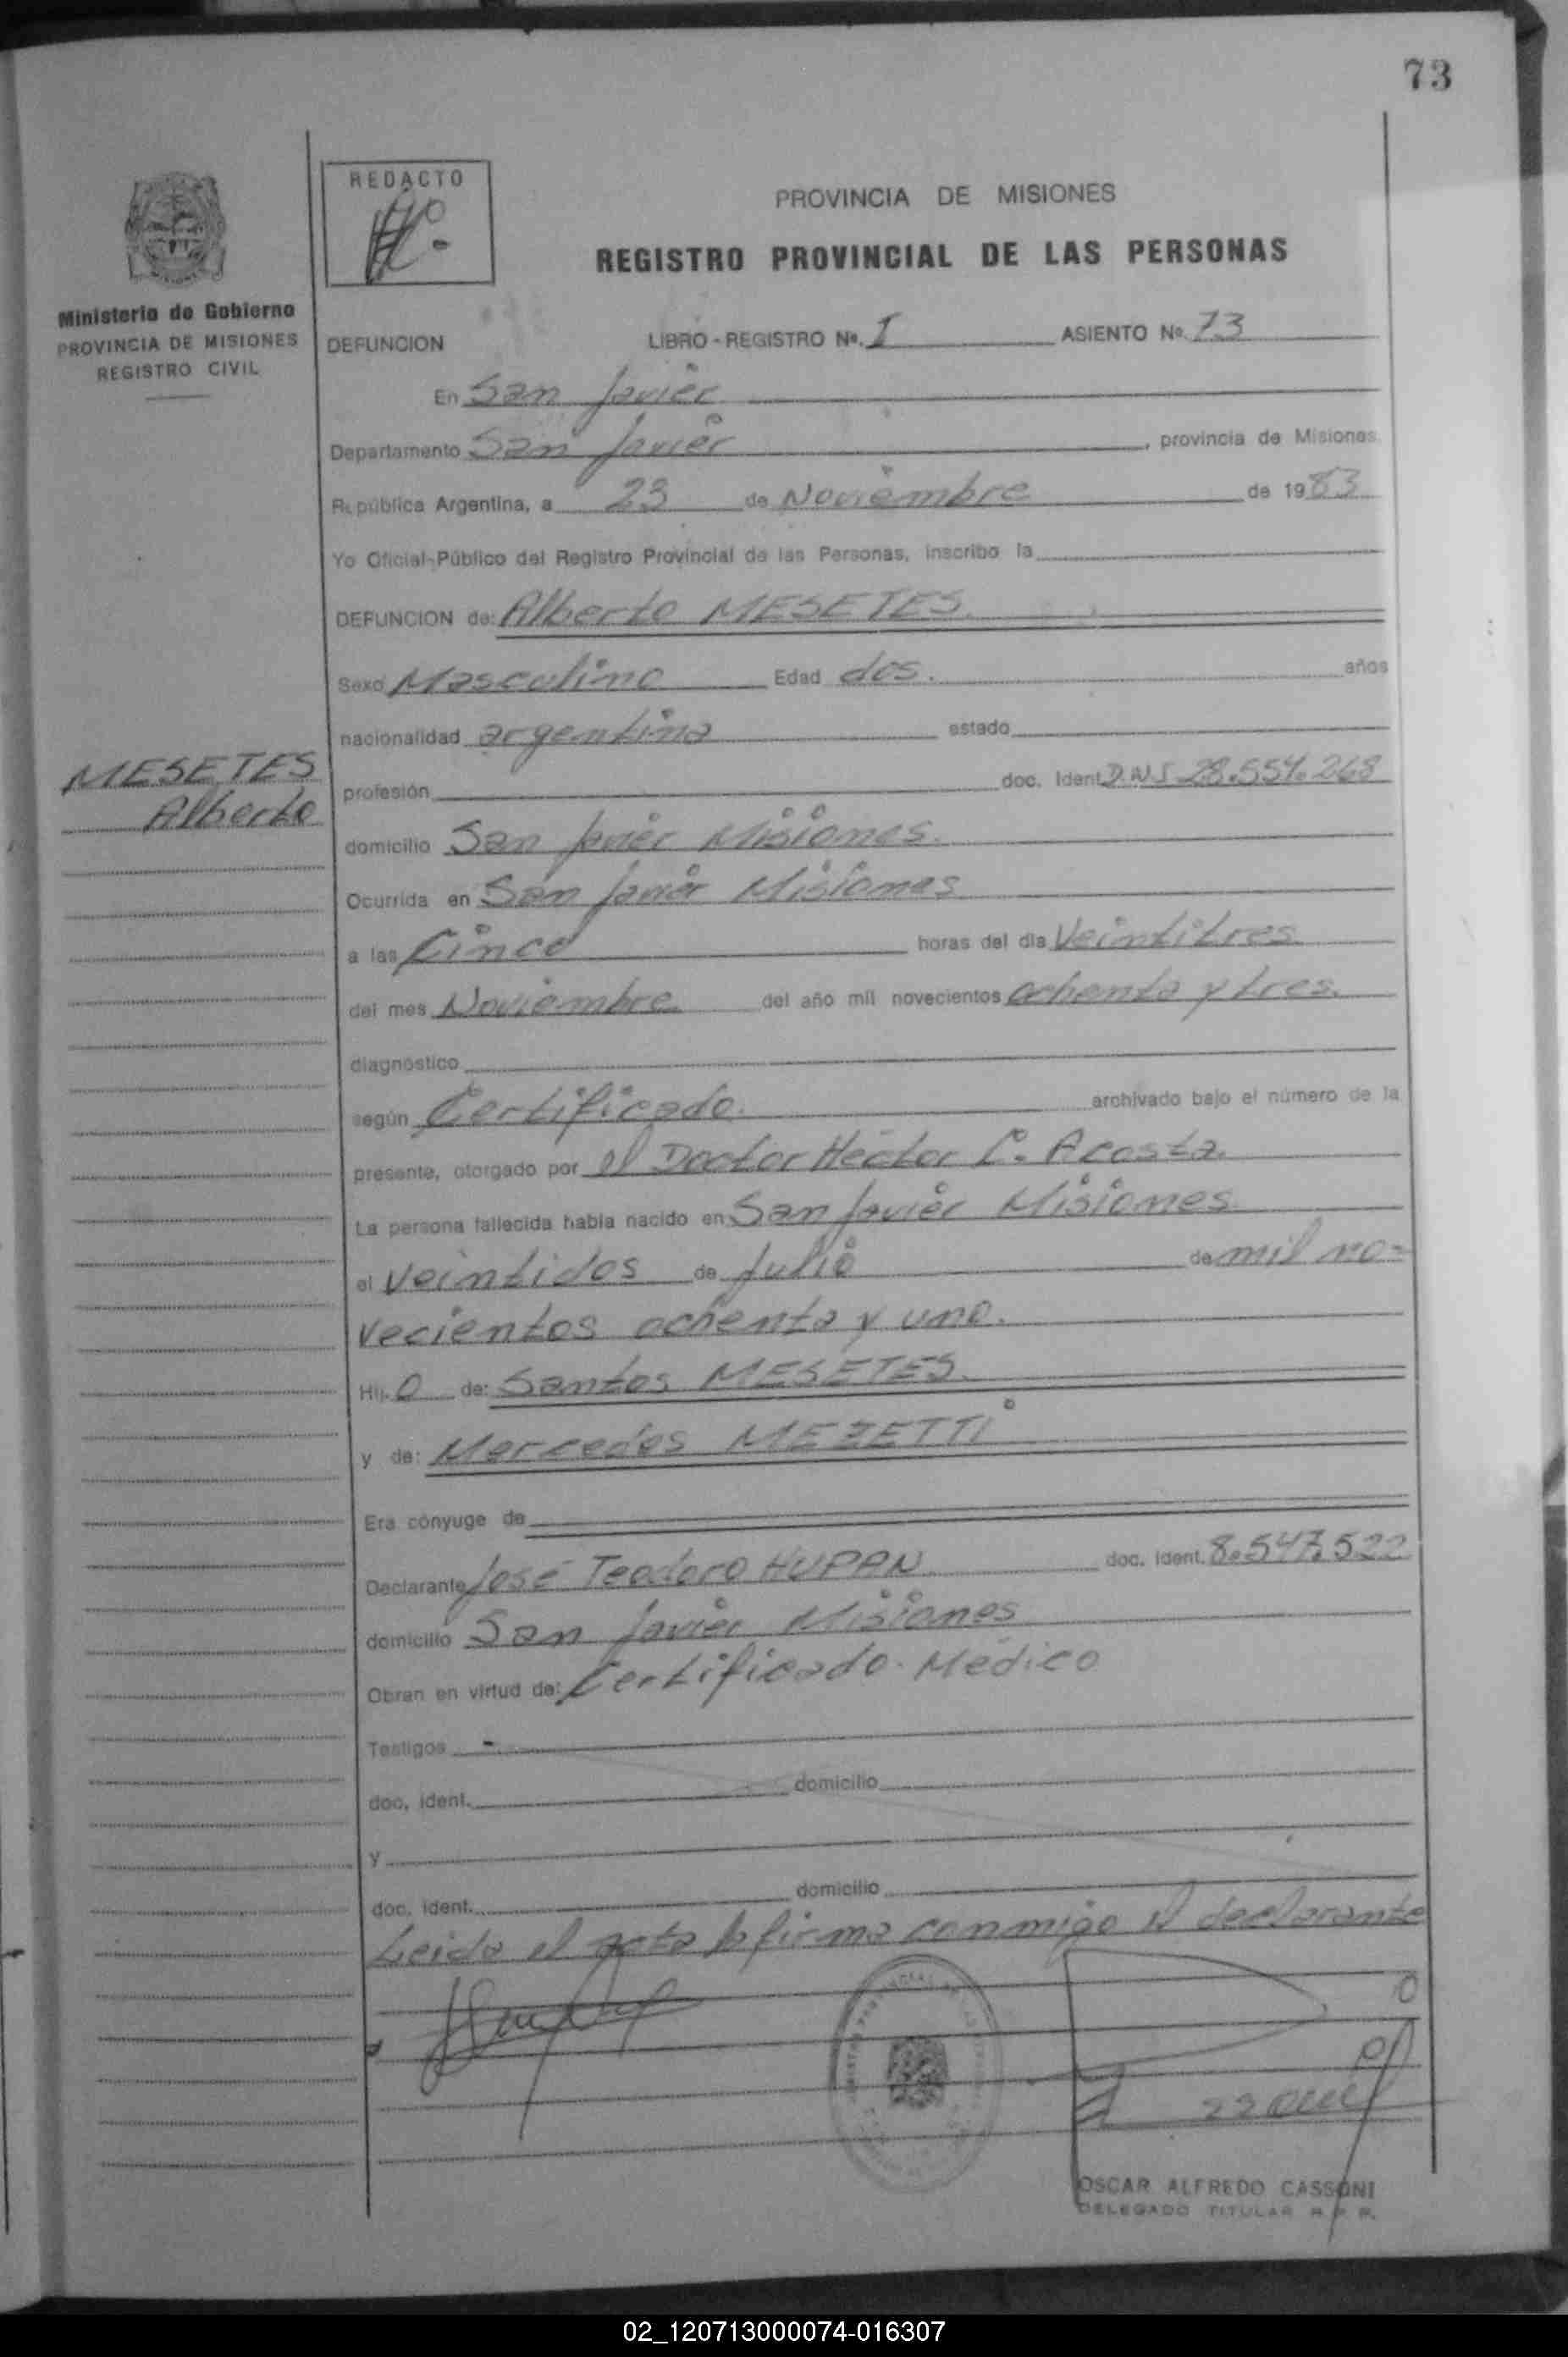 73
REDACTO
PROVINCIA DE MISIONES
REGISTRO PROVINCIAL DE LAS PERSONAS
Ministerio de Gobierno
PROVINCIA DE MISIONES
REGISTRO CIVIL
DEFUNCION LIBRO - REGISTRO Nº. I ASIENTO Nº. 73
En San Javier
Departamento San Javier, provincia de Misiones.
República Argentina, a 23 de Noviembre de 1983
Yo Oficial-Público del Registro Provincial de las Personas, inscribo la
DEFUNCION de: Alberto MESETES.
Sexo Masculino Edad dos. años
nacionalidad argentina estado
MESETES
Alberto
profesión doc. Ident. D.N.I 28.554.268
domicilio San Javier Misiones.
Ocurrida en San Javier Misiones
a las Cinco horas del día Veintitres
del mes Noviembre del año mil novecientos ochenta y tres.
diagnóstico
según Certificado. archivado bajo el número de la
presente, otorgado por el Doctor Héctor C. Acosta.
La persona fallecida había nacido en San Javier Misiones
el veintidos de Julio de mil no=
vecientos ochenta y uno.
Hij o de: Santos MESETES.
y de: Mercedes MEZETTI
Era cónyuge de
Declarante José Teodoro HUPAN doc. Ident. 8.547.522
domicilio San Javier Misiones
Obran en virtud de: Certificado Médico
Testigos -
doc, ident. domicilio
y
doc. ident. domicilio
Leida el acta la firma conmigo el declarante
OSCAR ALFREDO CASSONI
DELEGADO TITULAR R. P. P.
02_120713000074-016307